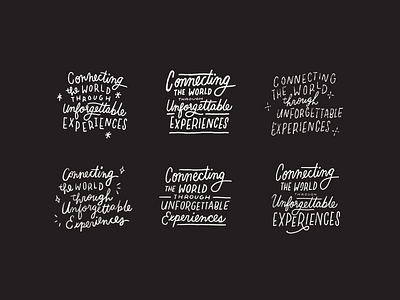 Connecting
the WORLD
THROUGH
Unforgettable
EXPERIENCES
Connecting
THE WORLD
THROUGH
Unforgettable
EXPERIENCES
CONNECTING
THE WORLD
through
UNFORGETTABLE
EXPERIENCES
Connecting
the WORLD
through
Unforgettable
Experiences
Connecting
THE WORLD
THROUGH
UNFORGETTABLE
Experiences
Connecting
THE WORLD
THROUGH
Unforgettable
EXPERIENCES